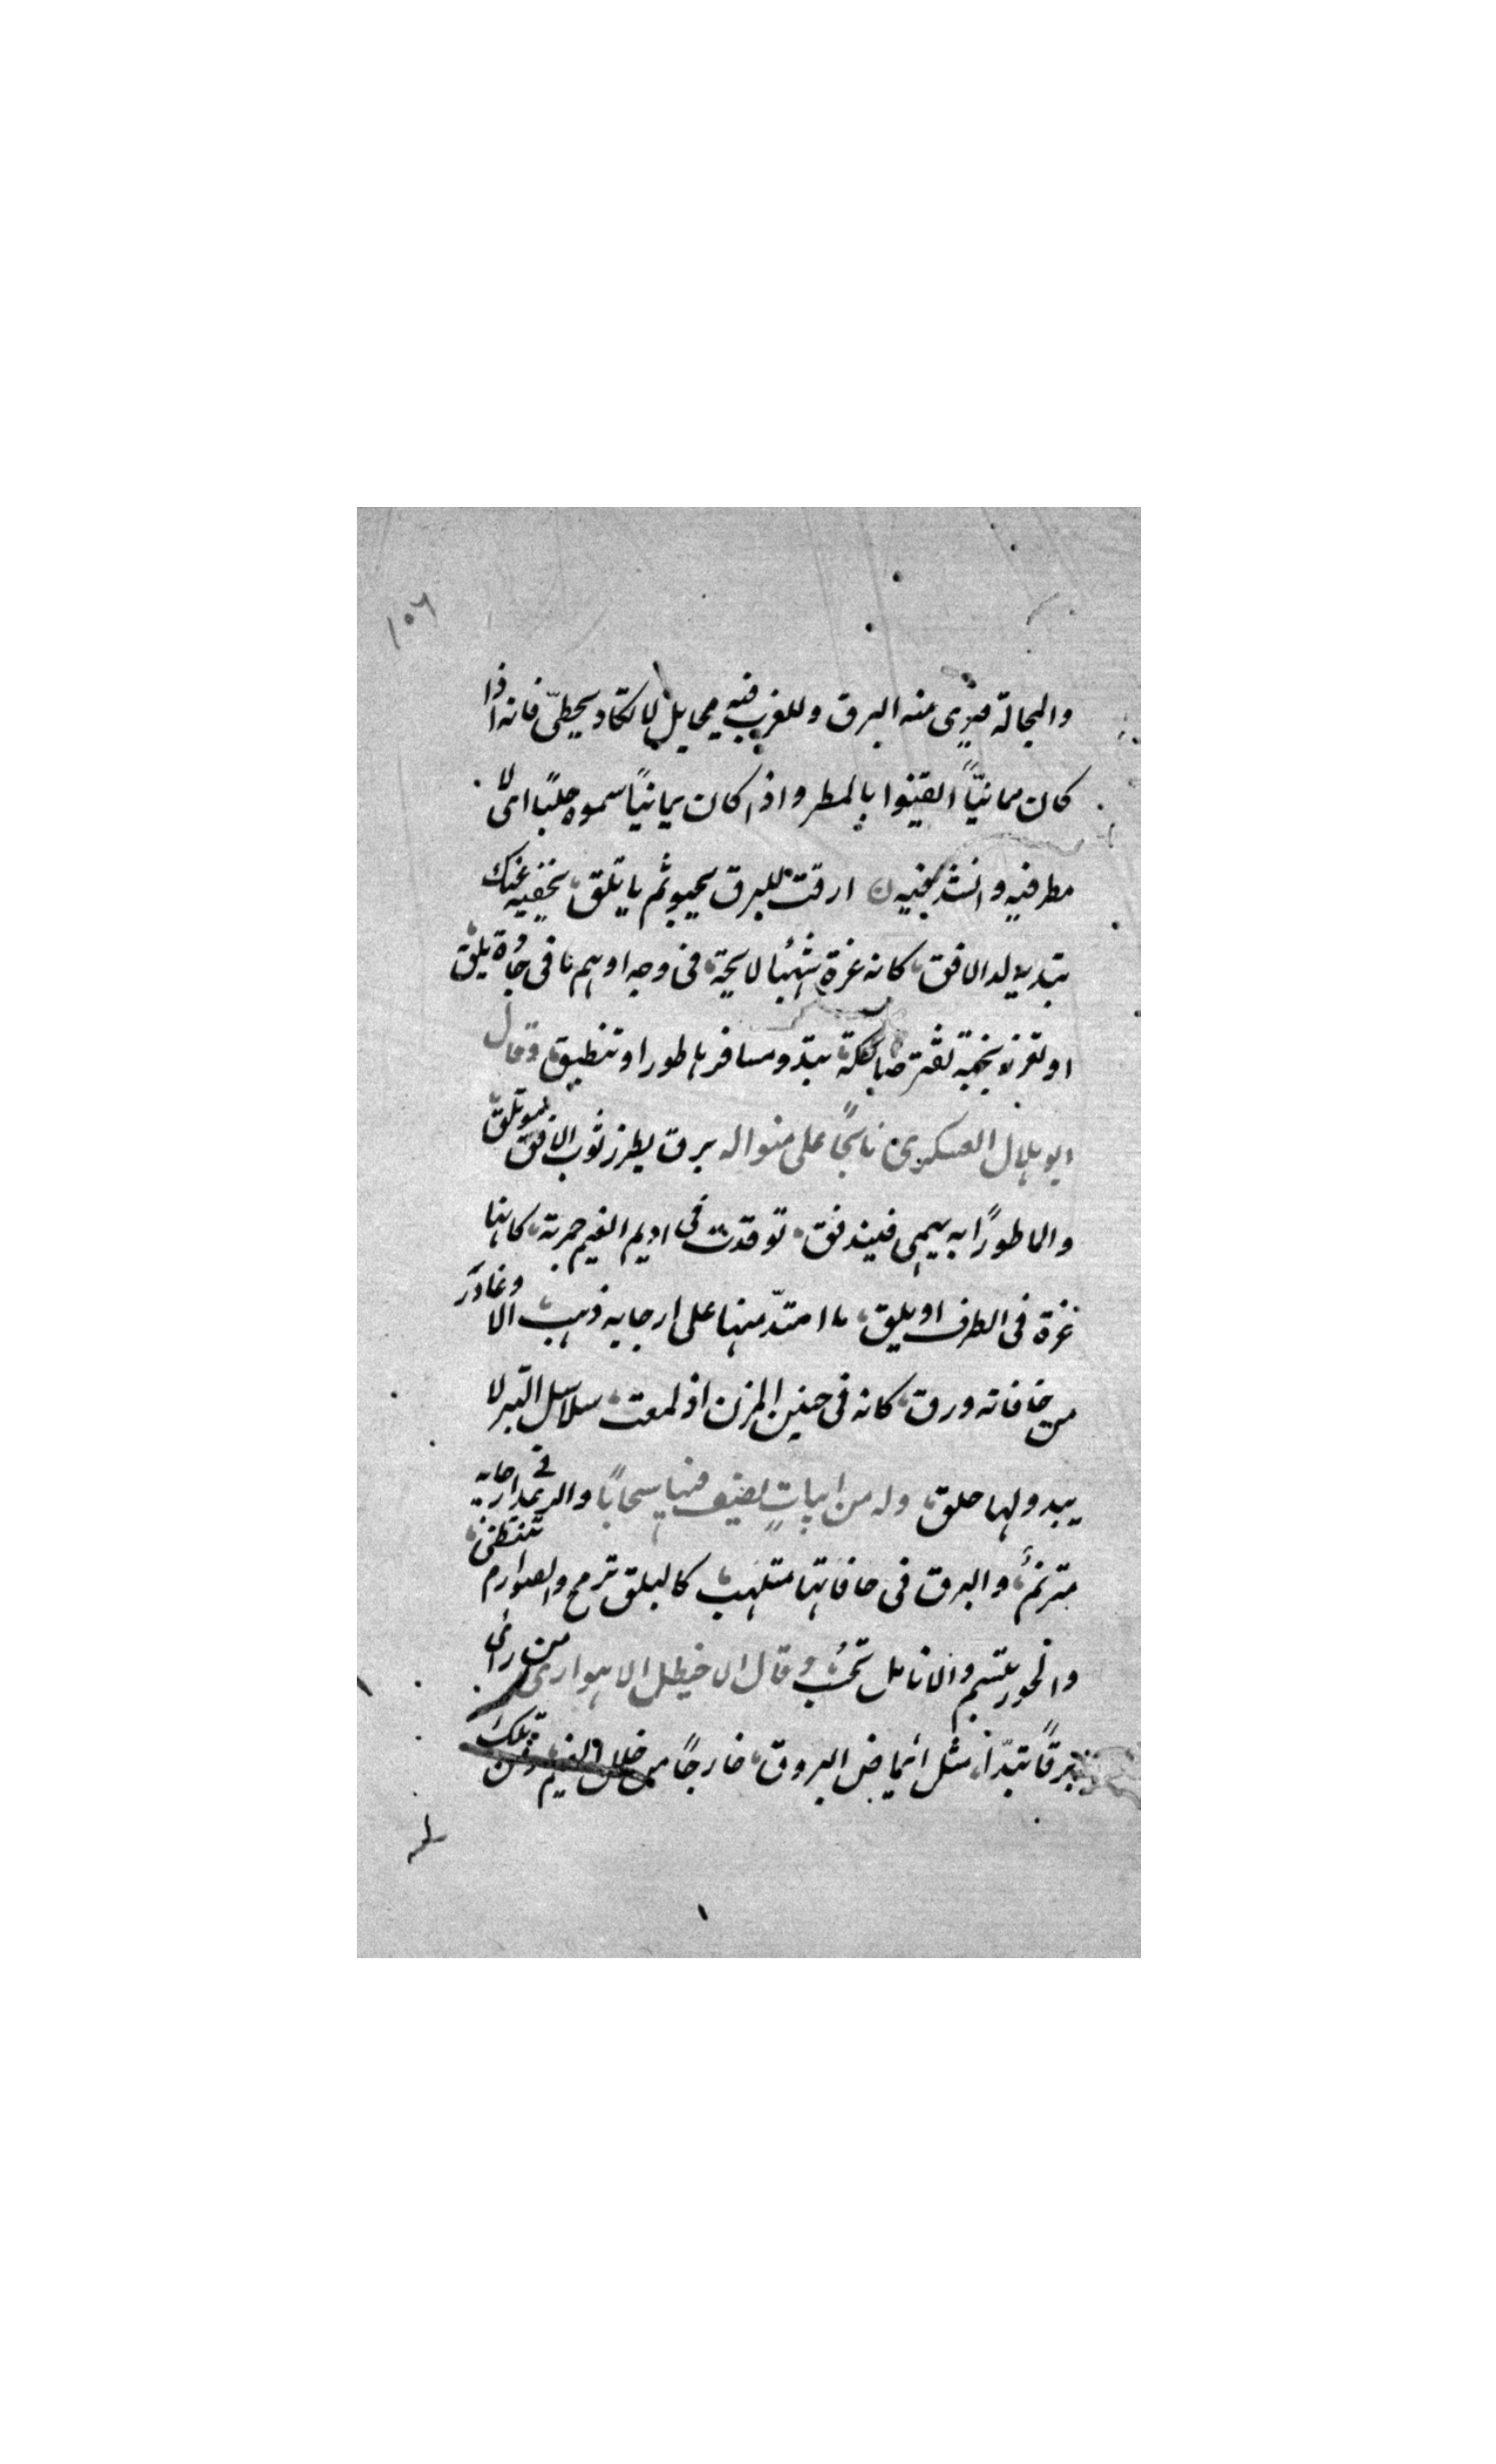 ١٠٦
والبحالة فيرى منه البرق وللعرب فيه مخايل لا تكاد تخطئ فانه اذا
كان يمانيًّا ايقنوا بالمطر واذا كان يمانيًا سموه خلبًا اى لا
مطر فيه وانشد ارقت للبرق يخبو ثم ياتلق، يخفيه عنك
يبديه لد الافق، كانه غرة شهبا لايحة، فى وجه ادهم ما فى جلده بلق
او ثغر زنجية تفتر ضاحكة تبدو مسافرها طورا وتنطبق، وقال
ابو هلال العسكرى ناسجًا على منواله برق يطرز ثوب الافق موتلق
والما طورًا به يهمى فيندفق، توقدت فى اديم الغيم جمرته، كانها
غرة فى الطرف او بلق، ما امتد منها على ارجايه ذهب، الا وغادر
من حافاته ورق، كانه فى حنين المزن اذ لمعت، سلاسل التبر لا
يبدو لها حلق، وله من ابيات يصف فيها سحابًا والرعد فى ارجايه
مترنم، والبرق فى حافاتها متلهب، كالبلق ترمح والصوارم تنتضى،
والحور يبتسم والانامل تحسب وقال الاخيطل الاهوازى من راى
برقًا تبدا، مثل ايماض البروق، خارجًا من خلال الغيم